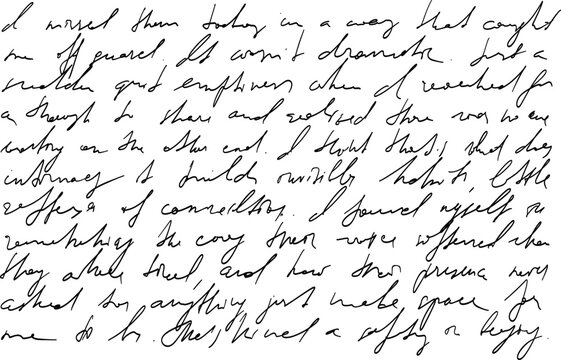 I missed them today in a way that caught
me off guard. It wasn't dramatic. Just a
sudden quiet emptiness when I reached for
a thought to share and realized there was no one
waiting on the other end. I think that's what
intimacy builds invisible habits, little
of connection. I found myself
remembering the way their voice softened when
they were tired, and how their presence never
asked for anything just made space for
me to be. That kind of safety